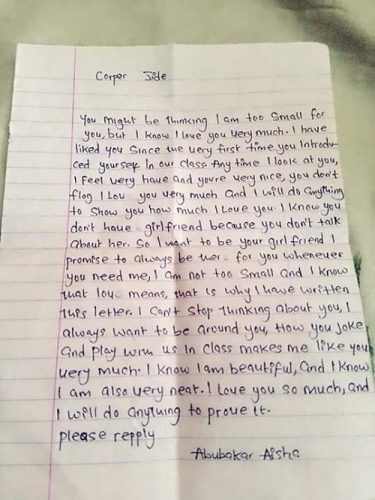 Corper Jide
You might be thinking I am too Small for
you, but I know I love you very much. I have
liked you Since the very first time you Introdu-
ced yourself In our class Any time I look at you,
I feel very have and you're very nice, you don't
flog I Lov you very much and I will do anything
to Show you how much I Love you. I know you
don't have girlfriend because you don't talk
about her. So I want to be your girlfriend I
promise to always be ther for you whenever
you need me, I am not too Small and I know
what lov means, that is why I have written
this letter. I can't Stop thinking about you, I
always want to be around you, How you Joke
and play with us in class makes me like you
very much. I know I am beautiful, and I know
I am also very neat. I Love you so much, and
I will do anything to prove it.
please repply
Abubakar Aisha